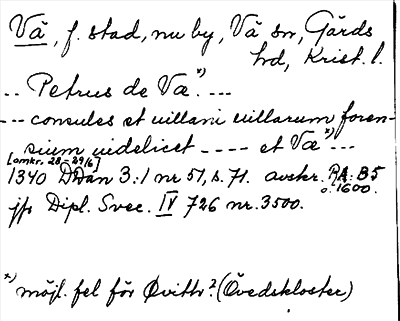 Vä, f. stad, nu by, Vä sn, Gärds
hd, Krist. l.
.. Petrus de Væ.*) ---
--- consules et uillani uillarum foren-
sium uidelicet ---- et Væ*) ---
[omkr. 28-29/6]
1340 DDan 3:1 nr 51, s. 71. avskr. RA: B5
o. 1600.
jfr Dipl. Svec. IV 726 nr. 3500.
*) möjl. fel för Øvithr? (Övedskloster)